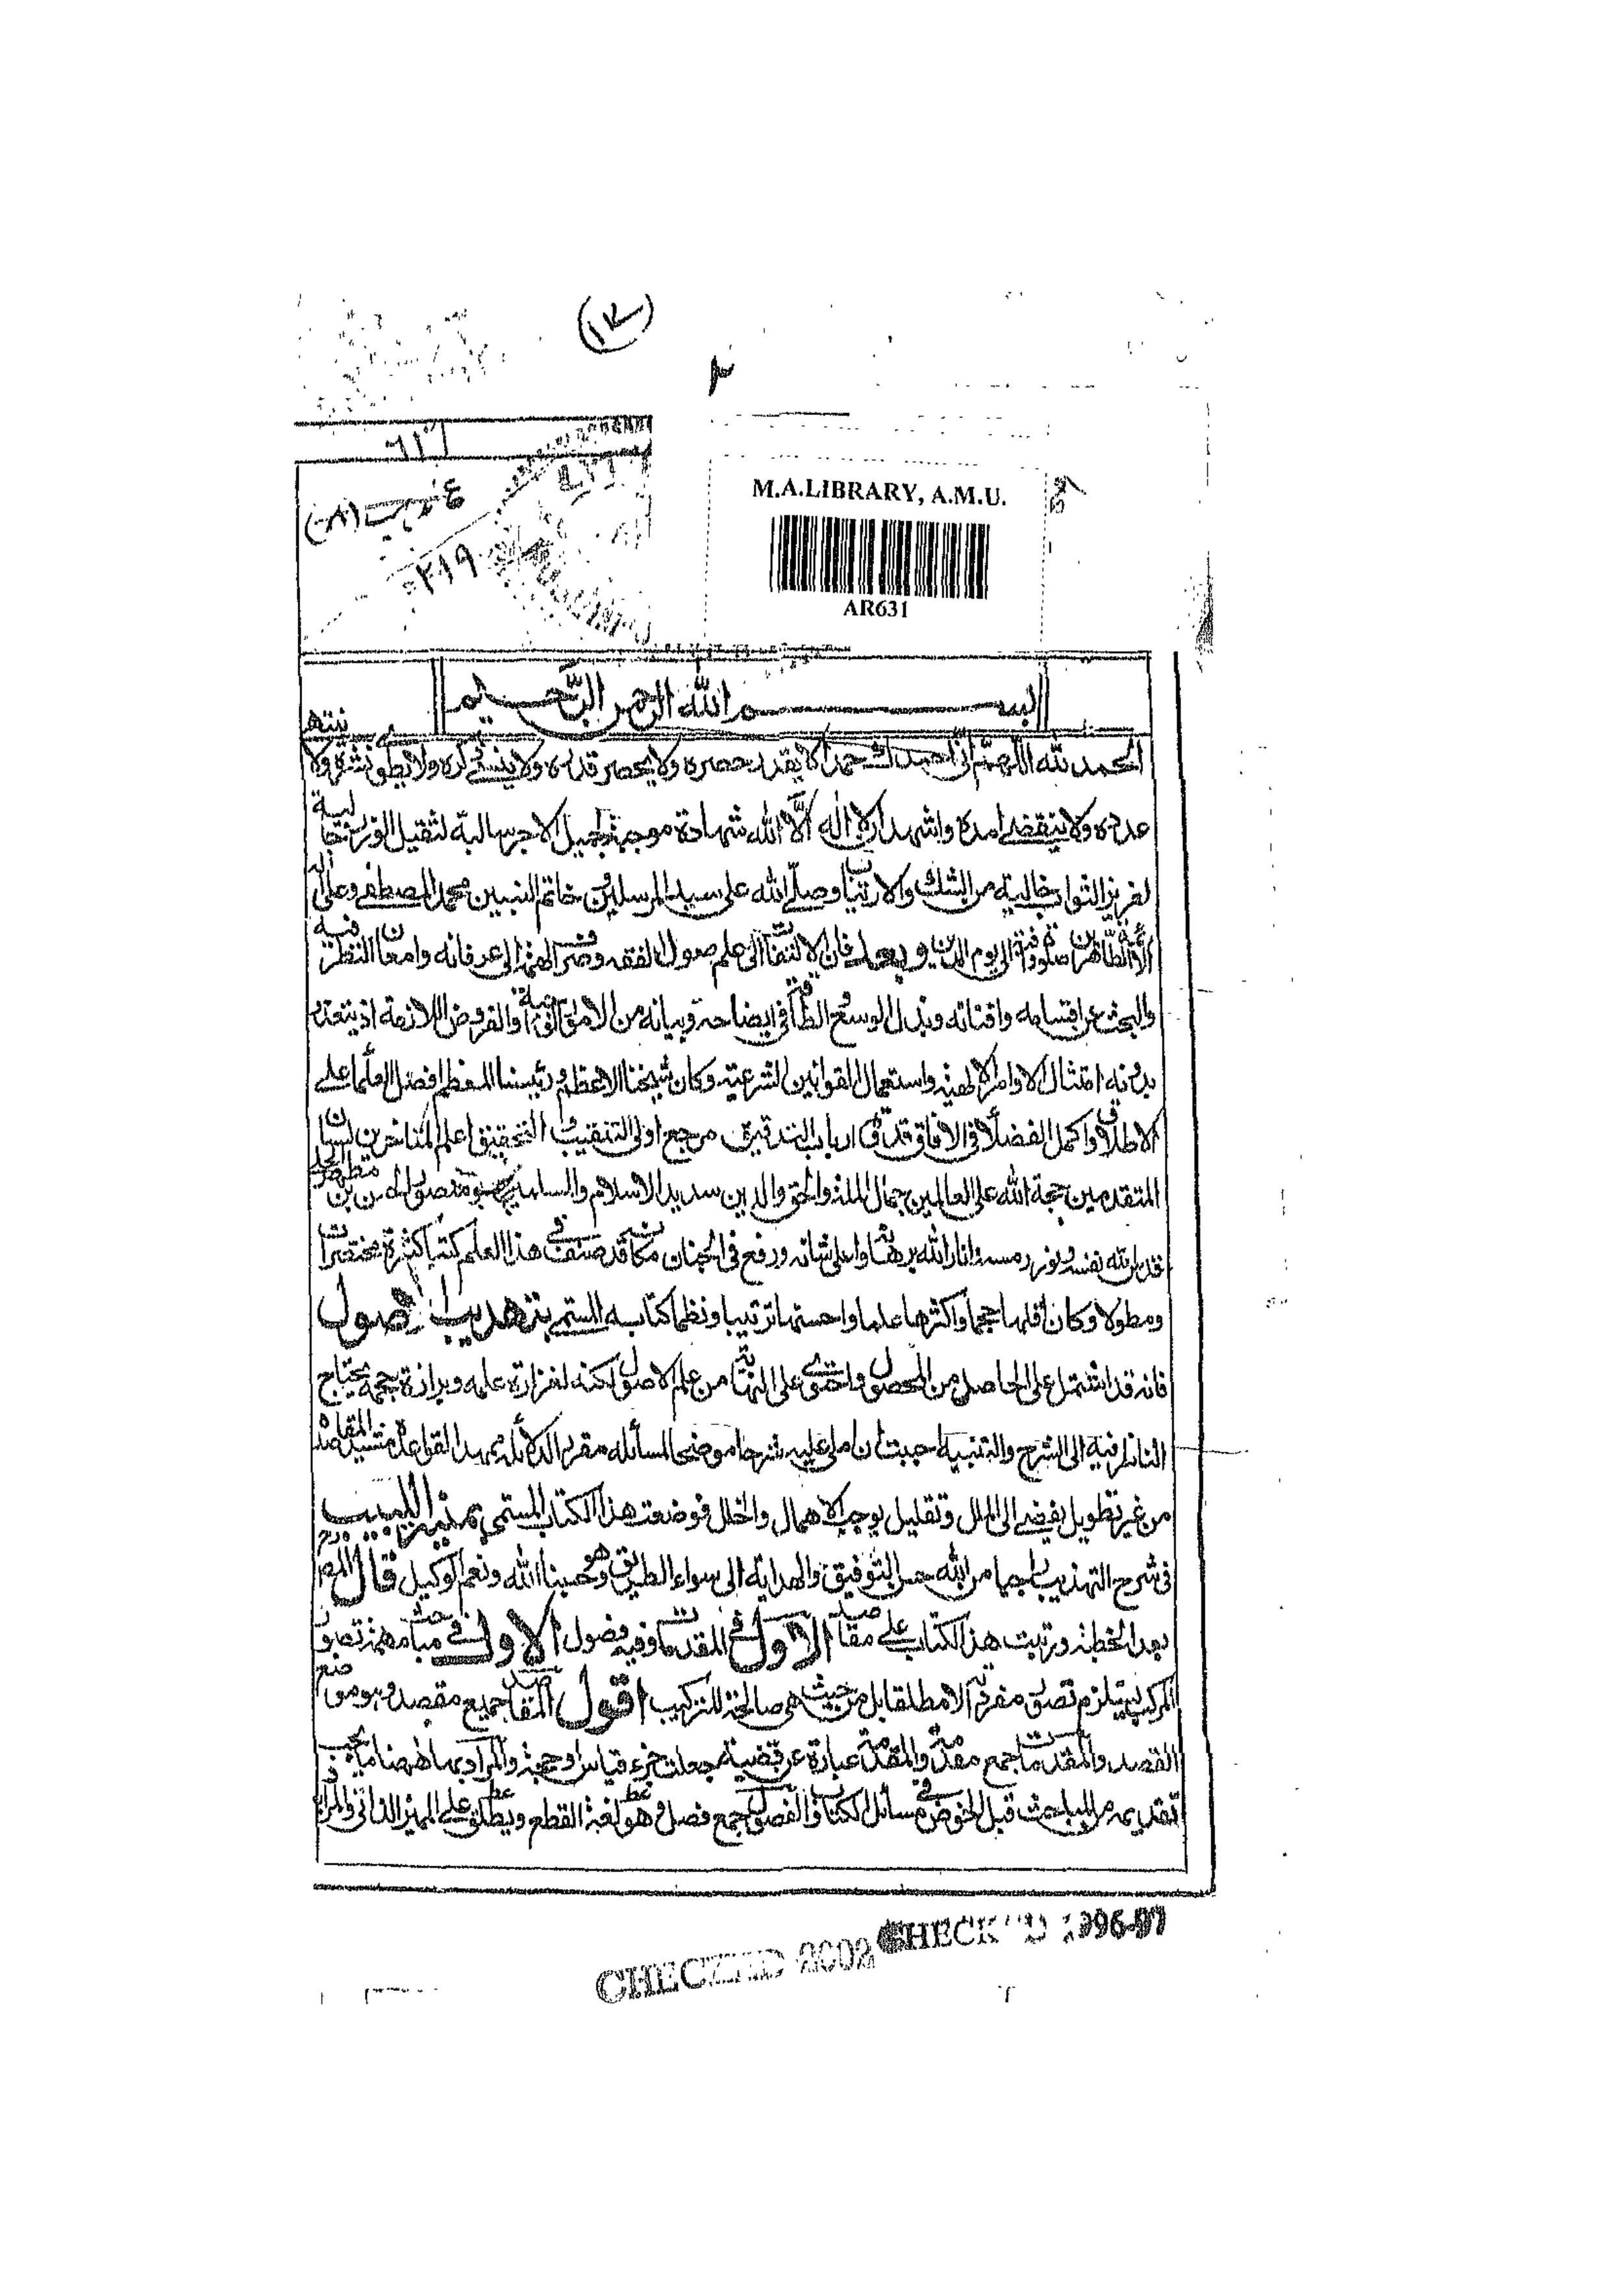 (١٢)
٢
٦١٢
٢١٩
M.A.LIBRARY, A.M.U.
AR631
بسم الله الرحمن الرحيم
الحمد لله اللهم اني احمدك حمدا لا يقدر حصره ولا يحصر قدره ولا ينسى ذكره ولا يطوى نشره ولا ينتهى
عدده ولا ينقضى امده واشهد ان لا اله الا الله شهادة موجبة لجميل الاجر سالبة لثقيل الوزر جالبة
لغرير الثواب خالية من الشك والارتياب وصلى الله على سيد المرسلين وخاتم النبيين محمد المصطفى وعلى اله
الطاهرين صلوة الى يوم الدين وبعد فان الالتفات الى علم اصول الفقه وصرف الهمة الى عرفانه وامعان النظر فيه
والبحث عن اقسامه وافنانه وبذل الوسع والطاقة في ايضاحه وبيانه من الامور والفروض اللازمة اذ يتعذر
بدونه امتثال الاوامر الالهية واستعمال القوانين الشرعية وكان شيخنا الاعظم ورئيسنا المعظم افضل العلماء على
الاطلاق واكمل الفضلاء في الافاق قدوة ارباب التدقيق مرجع اولى التنقيب والتحقيق اعلم المتاخرين لسان
المتقدمين حجة الله على العالمين جمال الملة والحق والدين سديد الاسلام والمسلمين ابو منصور الحسن بن مطهر الحلى
قدس الله نفسه ونور رمسه وانار الله برهانه واعلى شانه ورفع في الجنان مكانه قد صنف في هذا العلم كتبا كثيرة مختصرات
ومطولا وكان اقلها حجما واكثرها علما واحسنها ترتيبا ونظما كتابه المسمى بتهذيب الاصول
فانه قد اشتمل على الحاصل من المحصول واحتوى على النهاية من علم الاصول لكنه لغزارة علمه ونزارة حجمه يحتاج
الناظر فيه الى الشرح والتنبيه احببت ان املى عليه شرحا موضحا لمسائله مقررا لدلائله ممهدا لقواعده مشيدا لمقاصده
من غير تطويل يفضى الى الملل وتقليل يوجب الاهمال والخلل فوضعت هذا الكتاب المسمى بمنية اللبيب
في شرح التهذيب راجيا من الله حسن التوفيق والهداية الى سواء الطريق وهو حسبنا الله ونعم الوكيل قال المص
بعد الخطبة ورتبت هذا الكتاب على مقاصد الاول في المقدمات وفيه فصول الاول في مباحث مهمة تصور
المركب يستلزم تصور مفرداته لا مطلقا بل من حيث هى صالحة للتركيب اقول المقاصد جمع مقصد وهو موضع
القصد والمقدمات جمع مقدمة والمقدمة عبارة عن قضية جعلت جزء قياس او حجة والمراد بها ههنا ما يجب
تقديمه من المباحث قبل الخوض في مسائل الكتاب والفصول جمع فصل وهو لغة القطع ويطلق على المميز الذاتى والمراد
CHECKED 2002
CHECKED 1996-97